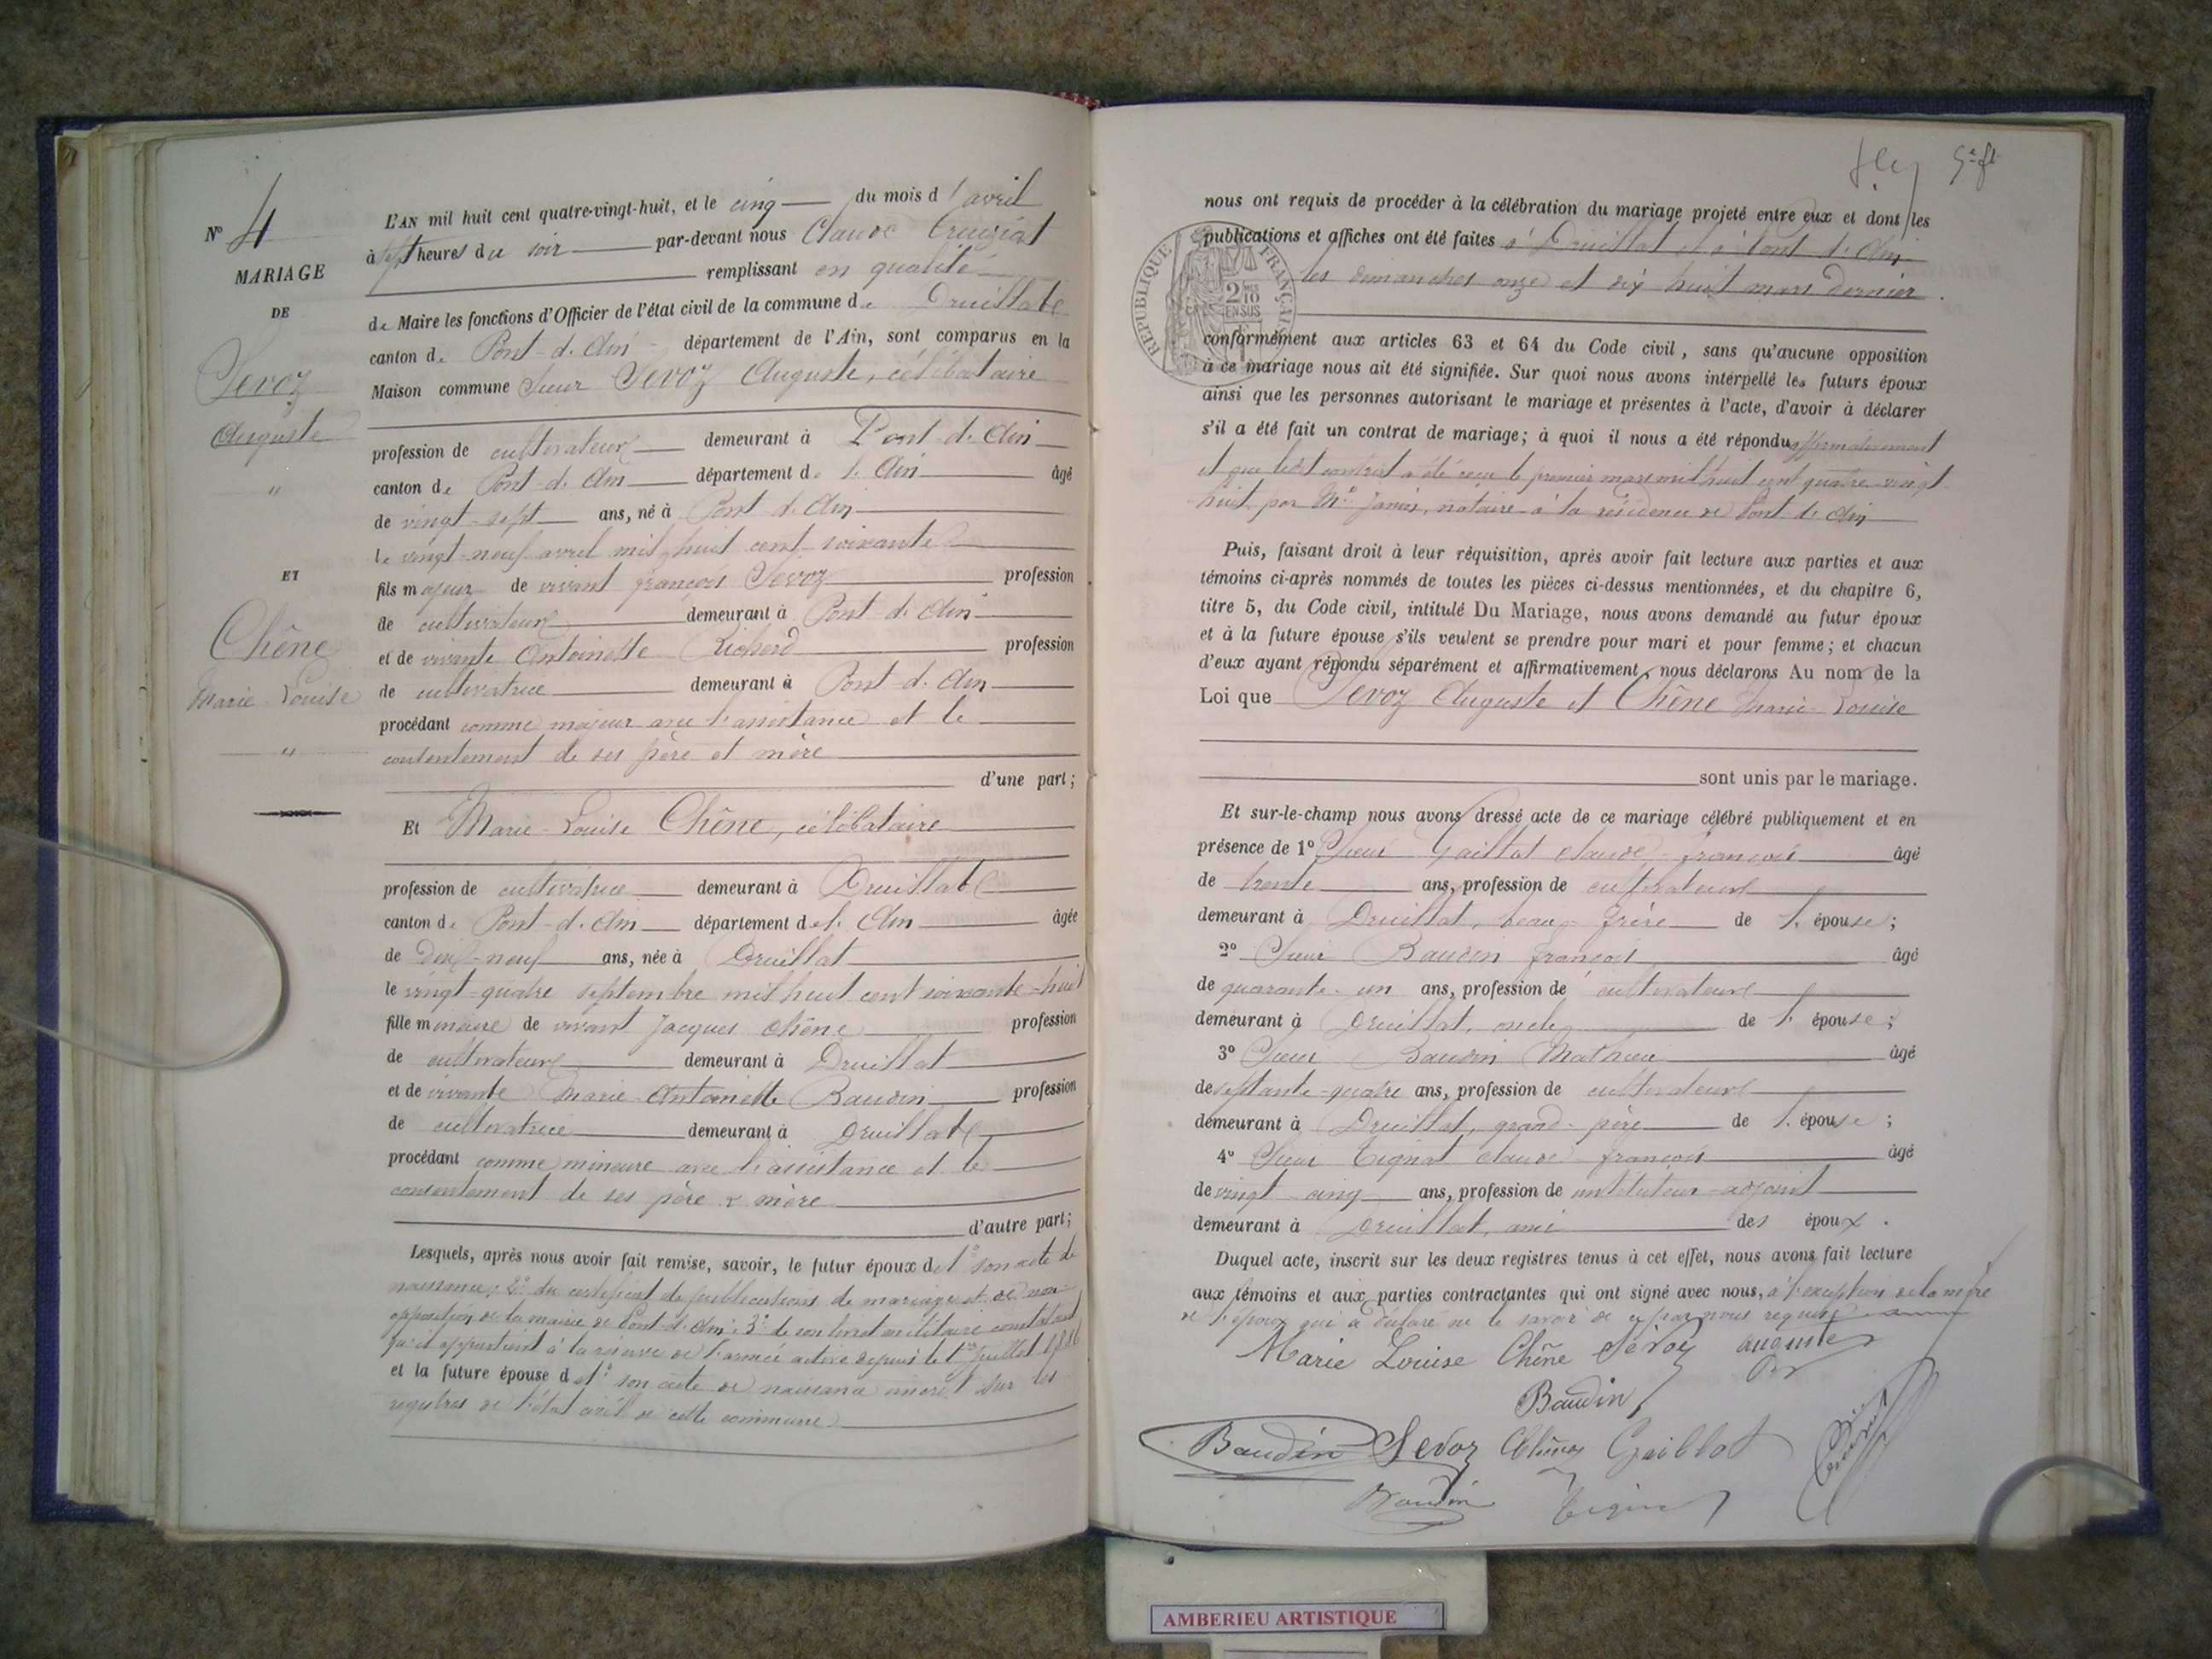 N° 4
MARIAGE
DE
Sevoz
Auguste
"
ET
Chêne
Marie-Louise
"
L'AN mil huit cent quatre-vingt-huit, et le cinq du mois d'avril
à sept heures du soir par-devant nous Claude Cruiziat
remplissant en qualité
de Maire les fonctions d'Officier de l'état civil de la commune de Druillat
canton de Pont-d'Ain département de l'Ain, sont comparus en la
Maison commune Sieur Sevoz Auguste, célibataire
profession de cultivateur demeurant à Pont-d'Ain
canton de Pont-d'Ain département de l'Ain âgé
de vingt-sept ans, né à Pont d'Ain
le vingt-neuf avril mil huit cent soixante
fils majeur de vivant françois Sevoz profession
de cultivateur demeurant à Pont-d'Ain
et de vivante Antoinette Richerd profession
de cultivatrice demeurant à Pont-d'Ain
procédant comme majeur avec l'assistance et le
consentement de ses père et mère
d'une part;
Et Marie-Louise Chêne, célibataire
profession de cultivatrice demeurant à Druillat
canton de Pont-d'Ain département de l'Ain âgée
de dix-neuf ans, née à Druillat
le vingt-quatre septembre mil huit cent soixante-huit
fille mineure de vivant Jacques Chêne profession
de cultivateur demeurant à Druillat
et de vivante Marie-Antoinette Baudin profession
de cultivatrice demeurant à Druillat
procédant comme mineure avec l'assistance et le
consentement de ses père & mère
d'autre part;
Lesquels, après nous avoir fait remise, savoir, le futur époux de 1° son acte de
naissance; 2° du certificat de publications de mariage et de non
opposition de la mairie de Pont-d'Ain; 3° de son livret militaire constatant
qu'il appartient à la réserve de l'armée active depuis le 1er juillet 1886
et la future épouse de 1° son acte de naissance inscrit sur les
registres de l'état civil de cette commune
5e ft
nous ont requis de procéder à la célébration du mariage projeté entre eux et dont les
publications et affiches ont été faites à Druillat et à Pont d'Ain
les dimanches onze et dix huit mars dernier.
RÉPUBLIQUE FRANÇAISE
2/10 EN SUS
conformément aux articles 63 et 64 du Code civil, sans qu'aucune opposition
à ce mariage nous ait été signifiée. Sur quoi nous avons interpellé les futurs époux
ainsi que les personnes autorisant le mariage et présentes à l'acte, d'avoir à déclarer
s'il a été fait un contrat de mariage; à quoi il nous a été répondu affirmativement
et que ledit contrat a été reçu le premier mars mil huit cent quatre-vingt
huit par Me Janin, notaire à la résidence de Pont d'Ain
Puis, faisant droit à leur réquisition, après avoir fait lecture aux parties et aux
témoins ci-après nommés de toutes les pièces ci-dessus mentionnées, et du chapitre 6,
titre 5, du Code civil, intitulé Du Mariage, nous avons demandé au futur époux
et à la future épouse s'ils veulent se prendre pour mari et pour femme; et chacun
d'eux ayant répondu séparément et affirmativement, nous déclarons Au nom de la
Loi que Sevoz Auguste et Chêne Marie-Louise
sont unis par le mariage.
Et sur-le-champ nous avons dressé acte de ce mariage célébré publiquement et en
présence de 1° Sieur Gaillot Claude-françois âgé
de trente ans, profession de cultivateur
demeurant à Druillat, beau-frère de l'épouse;
2° Sieur Baudin françois âgé
de quarante-un ans, profession de cultivateur
demeurant à Druillat, oncle de l'épouse;
3° Sieur Baudin Mathieu âgé
de septante-quatre ans, profession de cultivateur
demeurant à Druillat, grand-père de l'épouse;
4° Sieur Tignat Claude-françois âgé
de vingt-cinq ans, profession de instituteur-adjoint
demeurant à Druillat, ami des époux.
Duquel acte, inscrit sur les deux registres tenus à cet effet, nous avons fait lecture
aux témoins et aux parties contractantes qui ont signé avec nous, à l'exception de la mère
de l'époux qui a déclaré ne le savoir de ce par nous requise
Marie Louise Chêne Sevoz auguste
Baudin
Baudin Sevoz Chêne Gaillot
Baudin
AMBERIEU ARTISTIQUE